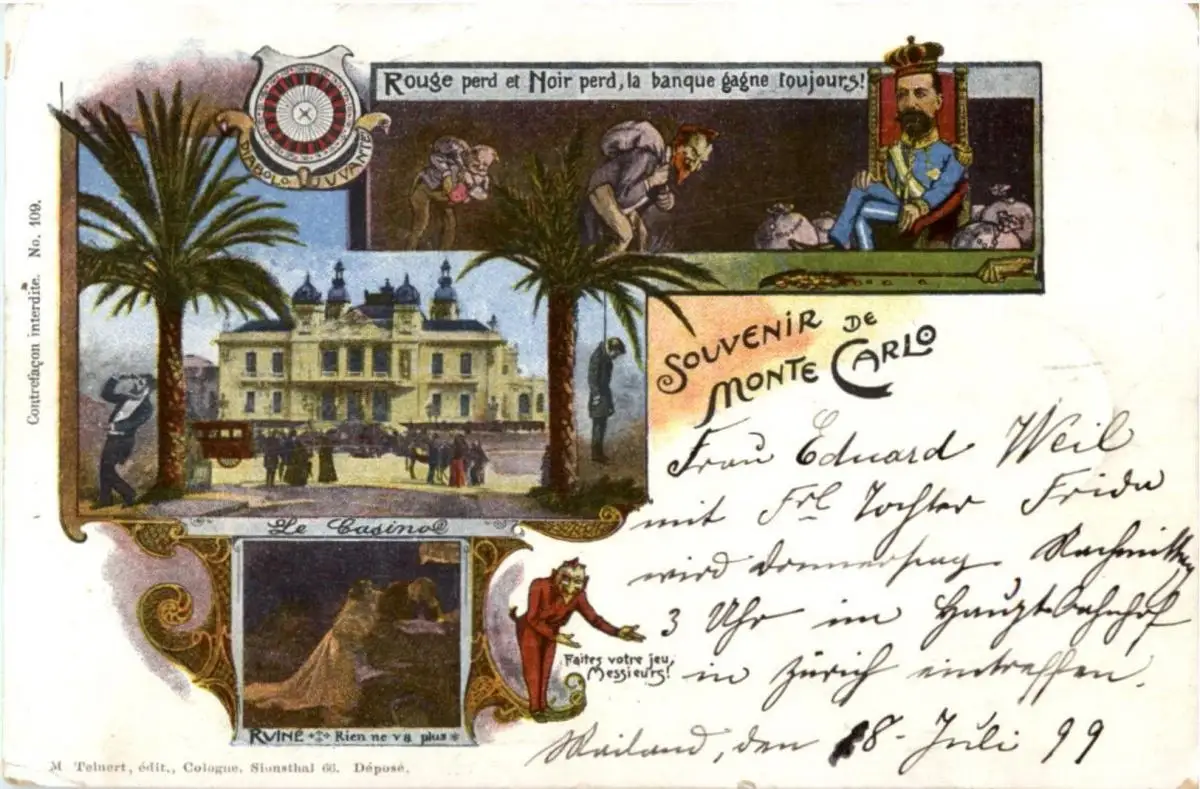 Rouge perd et Noir perd, la banque gagne toujours!
DIABOLO JUVANTE
Contrefaçon interdite. No. 109.
SOUVENIR DE
MONTE CARLO
Frau Eduard Weil
mit Frl Tochter Frida
wird Donnerstag Nachmittag
3 Uhr im Hauptbahnhof
in Zürich eintreffen.
Mailand, den 18. Juli 99
Le Casino
Faites votre jeu,
Messieurs!
RUINE Rien ne va plus
M. Teinert, édit., Cologne, Sionsthal 66. Déposé.